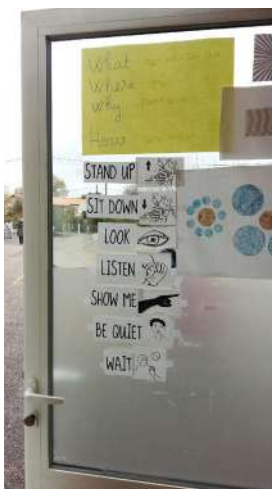 What
Where
Why
How
STAND UP
SIT DOWN
LOOK
LISTEN
SHOW ME
BE QUIET
WAIT